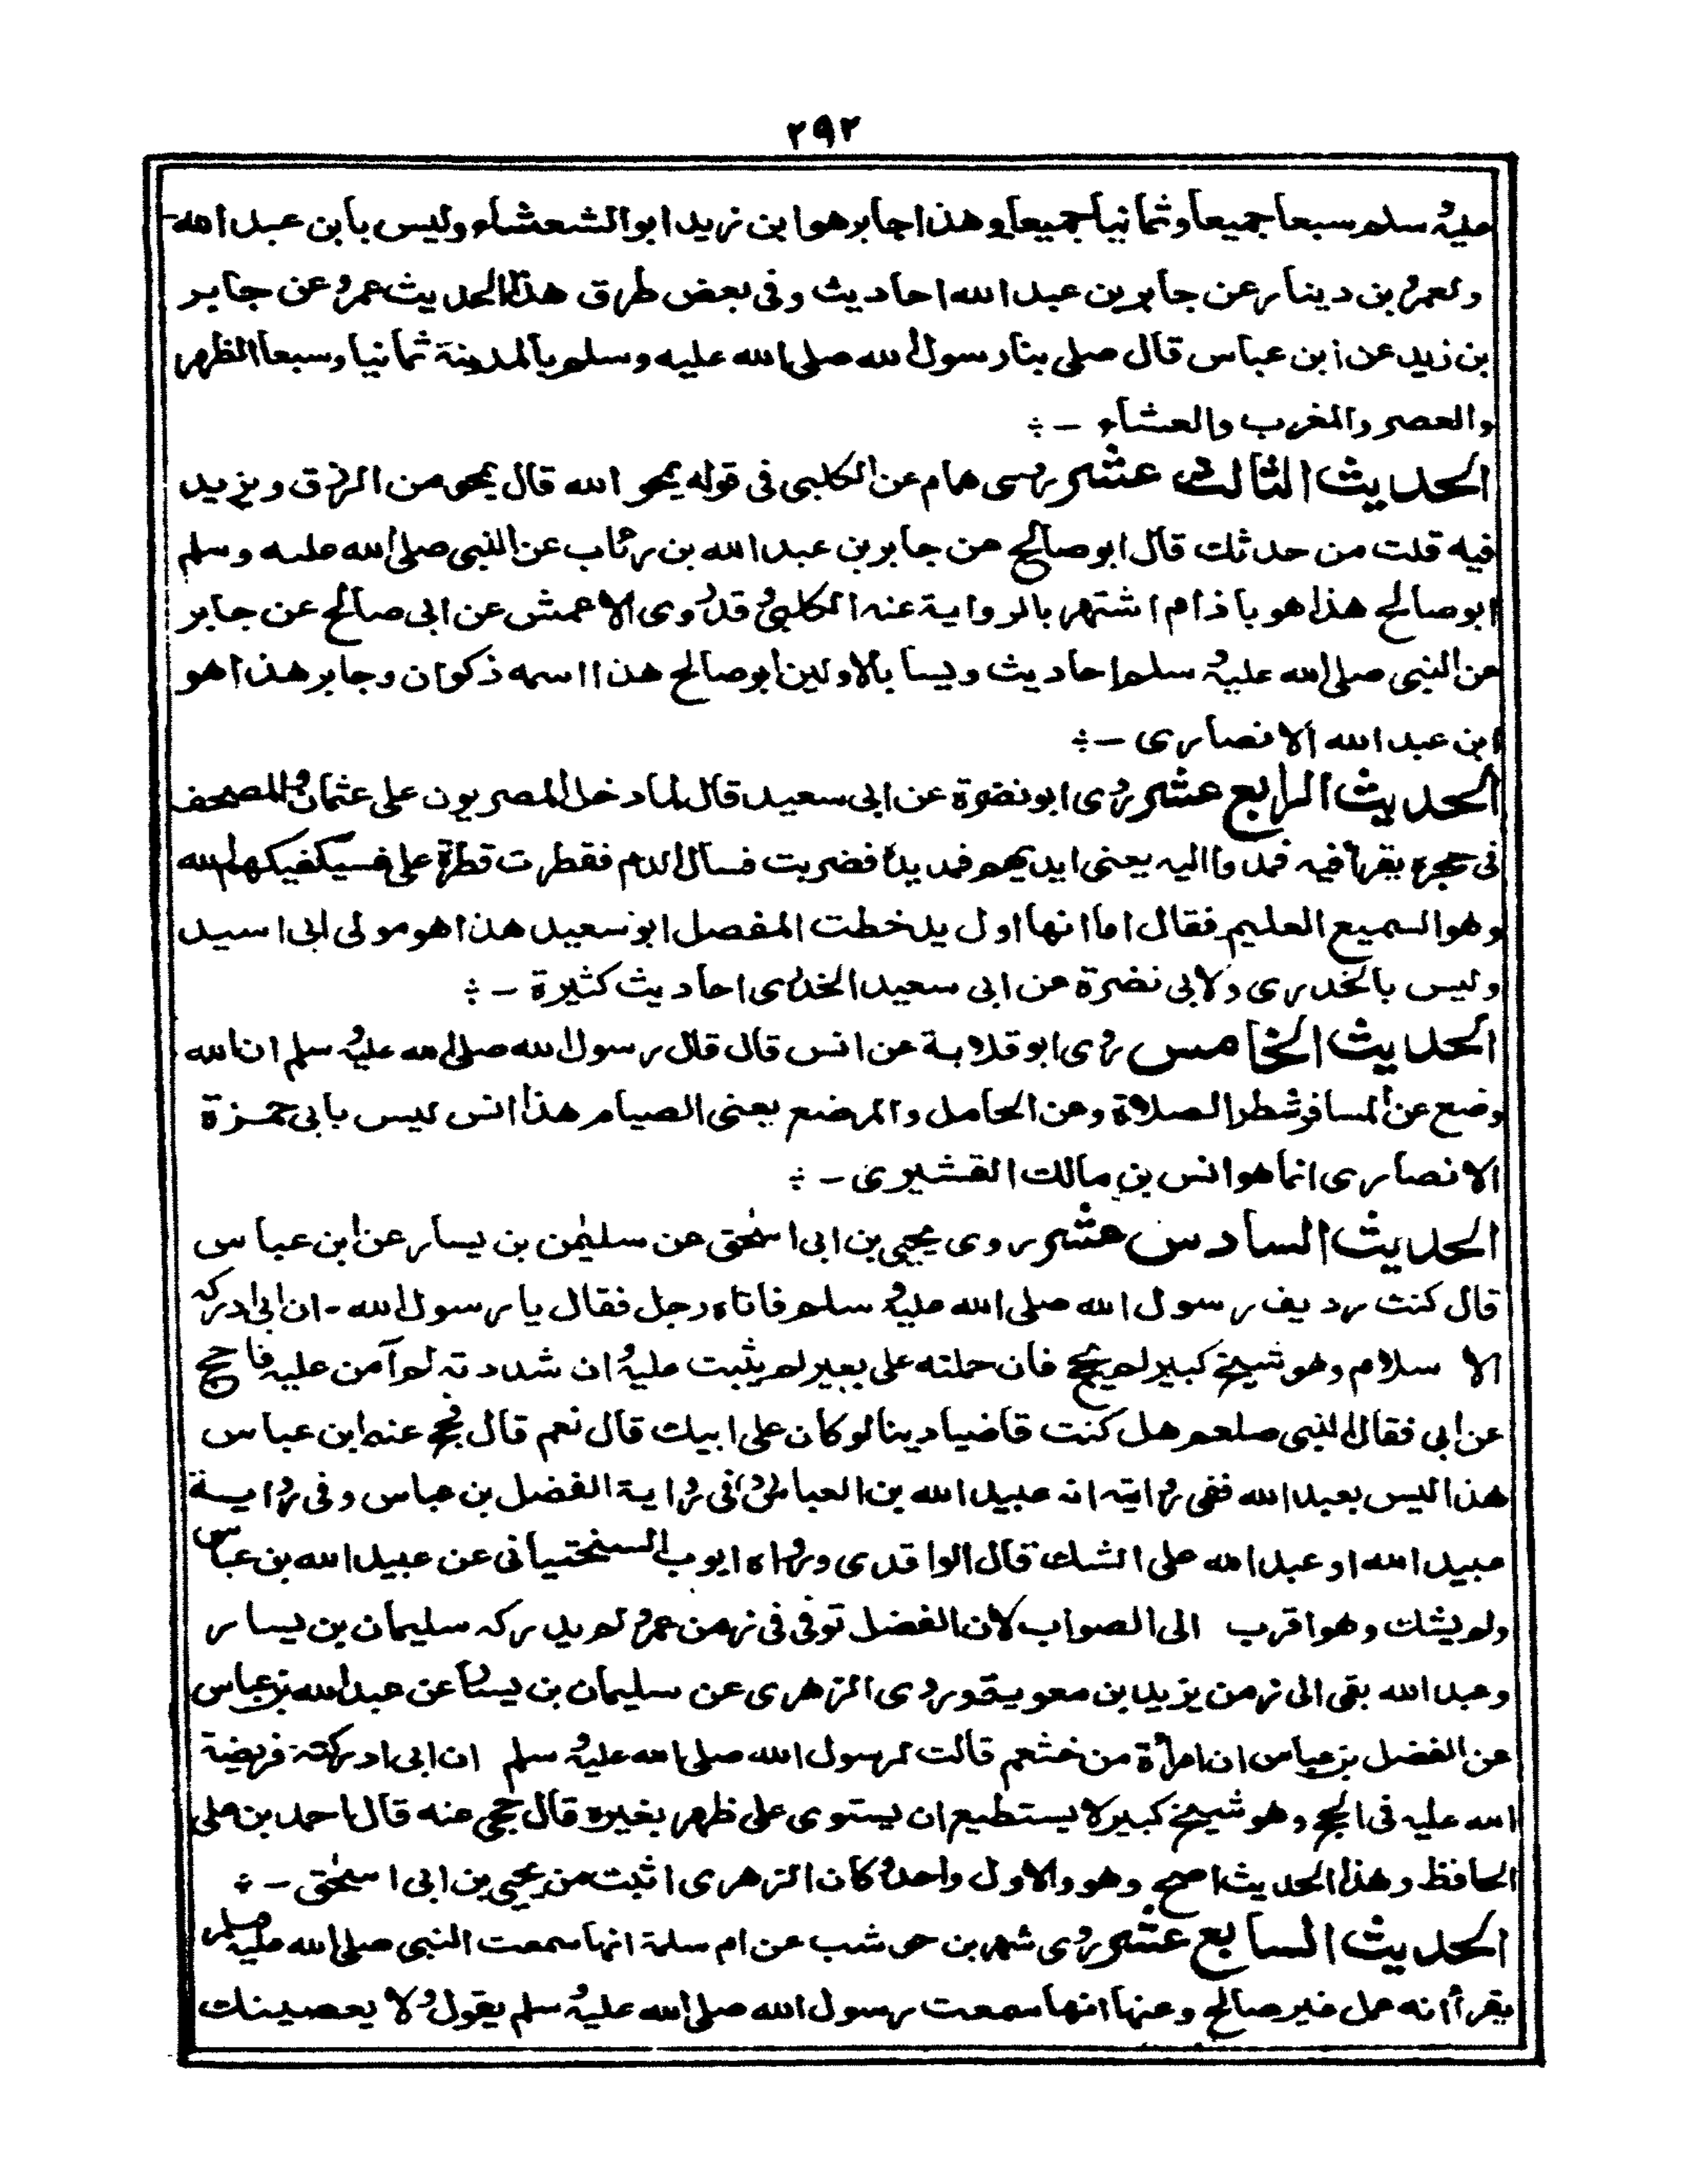 ٢٩٢
عليه وسلم سبعا جميعا وثمانيا جميعا وهذا جابر هو ابن زيد ابو الشعشاء وليس بابن عبد الله
ولعمرو بن دينار عن جابر بن عبد الله احاديث وفى بعض طرق هذا الحديث عمرو عن جابر
بن زيد عن ابن عباس قال صلى بنا رسول الله صلى الله عليه وسلم بالمدينة ثمانيا وسبعا الظهر
والعصر والمغرب والعشاء -
الحديث الثالث عشر روى همام عن الكلبى فى قوله يمحو الله قال يمحو من الرزق ويزيد
فيه قلت من حدثك قال ابو صالح عن جابر بن عبد الله بن رئاب عن النبى صلى الله عليه وسلم
ابو صالح هذا هو باذام اشتهر بالرواية عنه الكلبى وقد روى الاعمش عن ابى صالح عن جابر
عن النبى صلى الله عليه وسلم احاديث وليسا بالاولين ابو صالح هذا اسمه ذكوان وجابر هذا هو
ابن عبد الله الانصارى -
الحديث الرابع عشر روى ابو نضرة عن ابى سعيد قال لما دخل المصريون على عثمان والمصحف
فى حجره يقرأ فيه فمدوا اليه يعنى ايديهم فمد يده فضربت فسال الدم فقطرت قطرة على فسيكفيكهم الله
وهو السميع العليم فقال اما انها اول يد خطت المفصل ابو سعيد هذا هو مولى ابى اسيد
وليس بالخدرى ولابى نضرة عن ابى سعيد الخدرى احاديث كثيرة -
الحديث الخامس روى ابو قلابة عن انس قال قال رسول الله صلى الله عليه وسلم ان الله
وضع عن المسافر شطر الصلاة وعن الحامل والمرضع يعنى الصيام هذا انس ليس بابى حمزة
الانصارى انما هو انس بن مالك القشيرى -
الحديث السادس عشر روى يحيى بن ابى اسحٰق عن سليمٰن بن يسار عن ابن عباس
قال كنت رديف رسول الله صلى الله عليه وسلم فاتاه رجل فقال يا رسول الله - ان ابى ادركه
الاسلام وهو شيخ كبير لم يحج فان حملته على بعير لم يثبت عليه وان شددته لم آمن عليه فاحج
عن ابى فقال النبى صلعم هل كنت قاضيا دينا لو كان على ابيك قال نعم قال فحج عنه ابن عباس
هذا ليس بعبد الله ففى روايته انه عبيد الله بن العباس وفى رواية الفضل بن عباس وفى رواية
عبيد الله او عبد الله على الشك قال الواقدى ورواه ايوب السنختيانى عن عبيد الله بن عباس
ولم يشك وهو اقرب الى الصواب لان الفضل توفى فى زمن عمر ولم يدركه سليمان بن يسار
وعبد الله بقى الى زمن يزيد بن معوية وروى الزهرى عن سليمان بن يسار عن عبد الله بن عباس
عن الفضل بن عباس ان امرأة من خثعم قالت لرسول الله صلى الله عليه وسلم ان ابى ادركته فريضة
الله عليه فى الحج وهو شيخ كبير لا يستطيع ان يستوى على ظهر بغيره قال حجى عنه قال احمد بن على
الحافظ وهذا الحديث اصح وهو والاول واحد وكان الزهرى اثبت من يحيى بن ابى اسحٰق -
الحديث السابع عشر روى شهر بن حوشب عن ام سلمة انها سمعت النبى صلى الله عليه وسلم
يقرأ انه عمل غير صالح وعنها انها سمعت رسول الله صلى الله عليه وسلم يقول ولا يعصينك